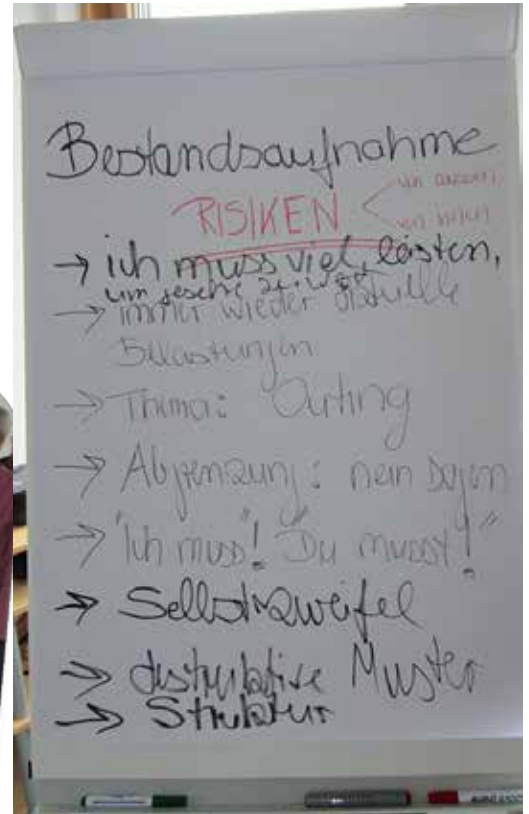 Bestandsaufnahme
RISIKEN
von außen
von innen
→ ich muss viel leisten,
um gesehen zu werden
→ immer wieder aktuelle
Belastungen
→ Thema: Outing
→ Abgrenzung: nein sagen
→ "Ich muss"! "Du musst!"
→ Selbstzweifel
→ destruktive Muster
→ Struktur